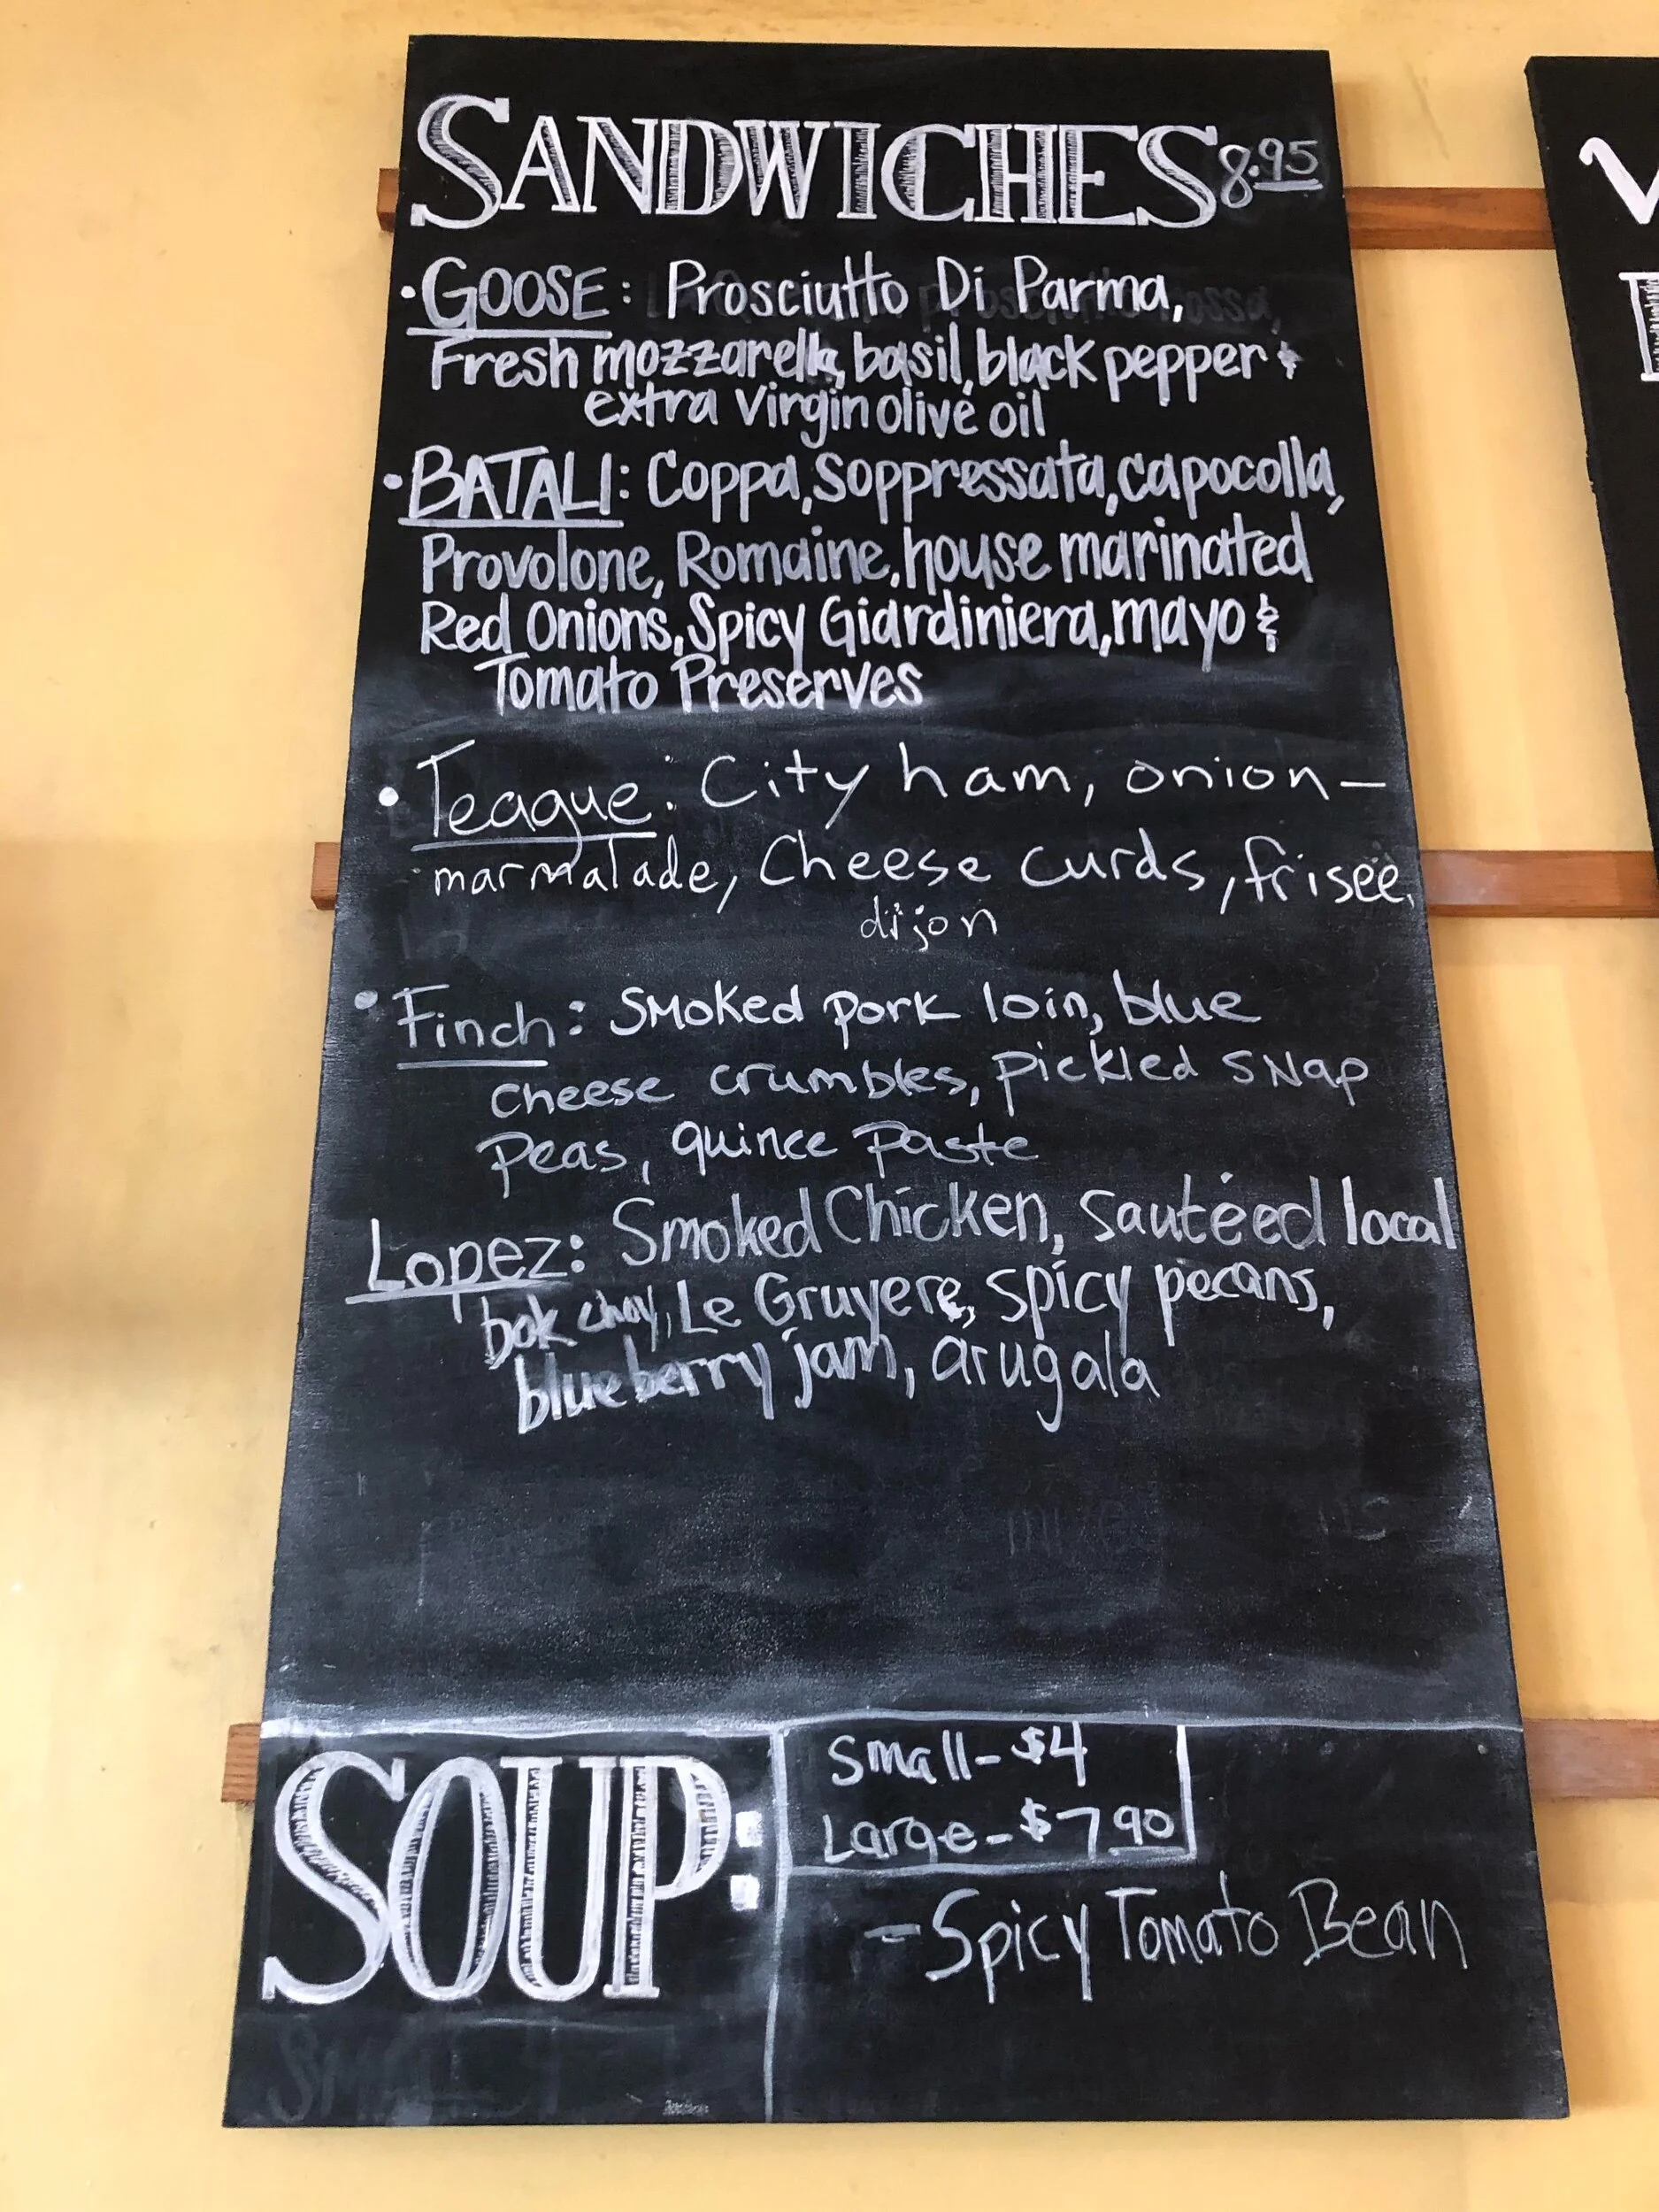 SANDWICHES 8.95
• GOOSE: Prosciutto Di Parma,
Fresh mozzarella, basil, black pepper &
extra Virgin olive oil
• BATALI: Coppa, Soppressata, capocolla,
Provolone, Romaine, house marinated
Red Onions, Spicy Giardiniera, mayo &
Tomato Preserves
• Teague: City ham, onion-
marmalade, Cheese curds, friseé,
dijon
• Finch: Smoked pork loin, blue
cheese crumbles, pickled snap
Peas, quince paste
Lopez: Smoked Chicken, sautéed local
bok choy, Le Gruyere, spicy pecans,
blueberry jam, arugala
SOUP:
Small- $4
Large- $7 90
- Spicy Tomato Bean